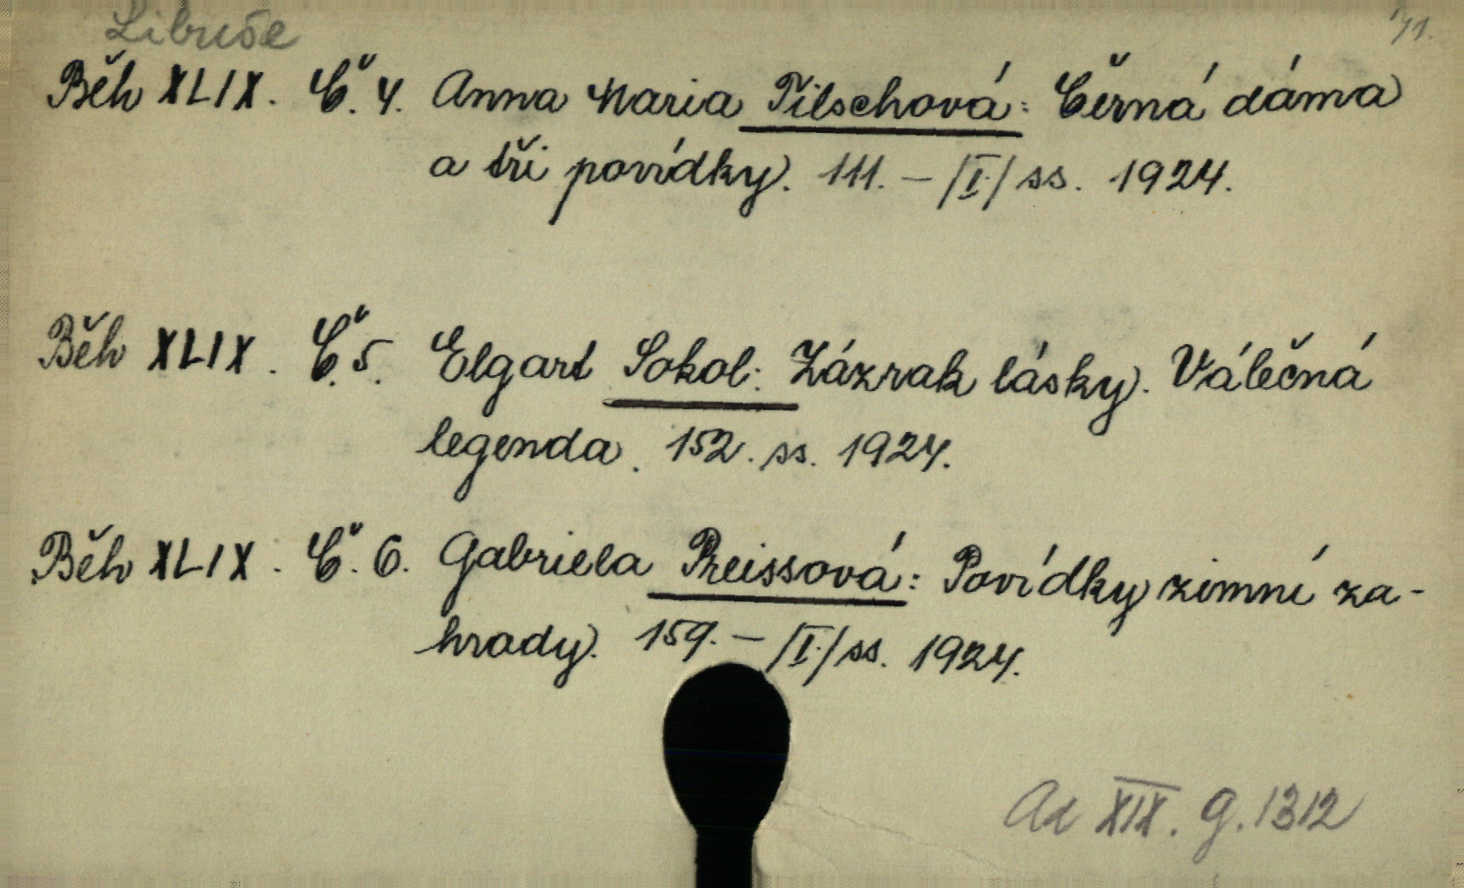 Libuše
71.
Běh XLIX. Č. 4. Anna Maria Tilschová: Černá dáma
a tři povídky. 111. – /I./ ss. 1924.
Běh XLIX. Č. 5. Elgart Sokol: Zázrak lásky. Válečná
legenda. 152. ss. 1924.
Běh XLIX. Č. 6. Gabriela Preissová: Povídky zimní za-
hrady. 159. – /I./ ss. 1924.
XIX. g. 1312